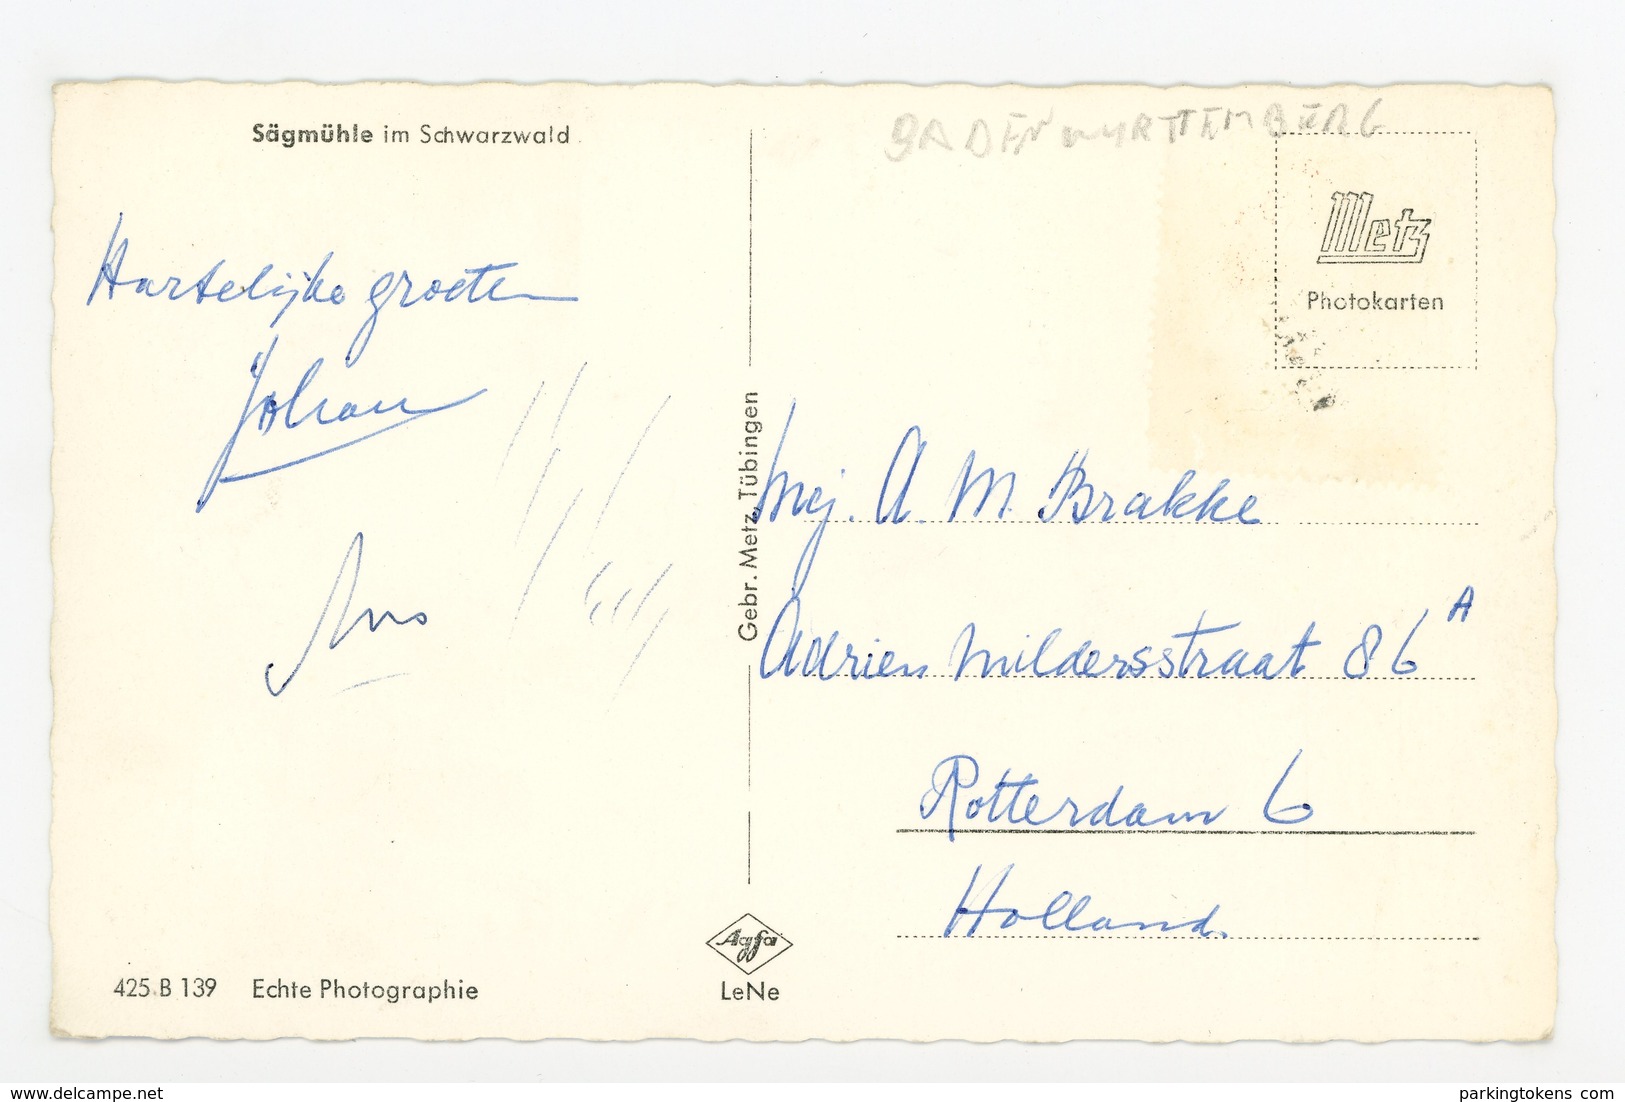 Sägmühle im Schwarzwald
BADEN WYRTTEMBERG
Metz
Photokarten
Hartelijke groeten
Johan
Gebr. Metz, Tübingen
Mej. A. M. Brakke
Adrien Mildersstraat 86 A
Rotterdam 6
Holland.
Agfa
LeNe
425 B 139 Echte Photographie
delcampe.net
parkingtokens.com